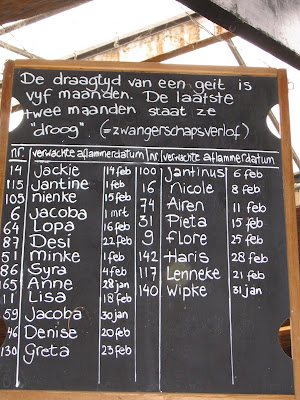 De draagtyd van een geit is
vyf maanden. De laatste
twee maanden staat ze
"droog". (=zwangerschapsverlof)
nr. verwachte aflammerdatum nr. verwachte aflammerdatum
14 Jackie 14 feb 100 Jantinus 6 feb
115 Jantine 1 feb 16 Nicole 8 feb
105 nienke 15 feb 74 Airen 11 feb
6 Jacoba 1 mrt 31 Pieta 15 feb
64 Lopa 16 feb 9 flore 25 feb
87 Desi 22 feb 142 Haris 28 feb
51 Minke 1 feb 117 Lenneke 21 feb
86 Syra 4 feb 140 Wipke 31 jan
165 Anne 28 jan
11 Lisa 18 feb
59 Jacoba 30 jan
46 Denise 20 feb
130 Greta 23 feb